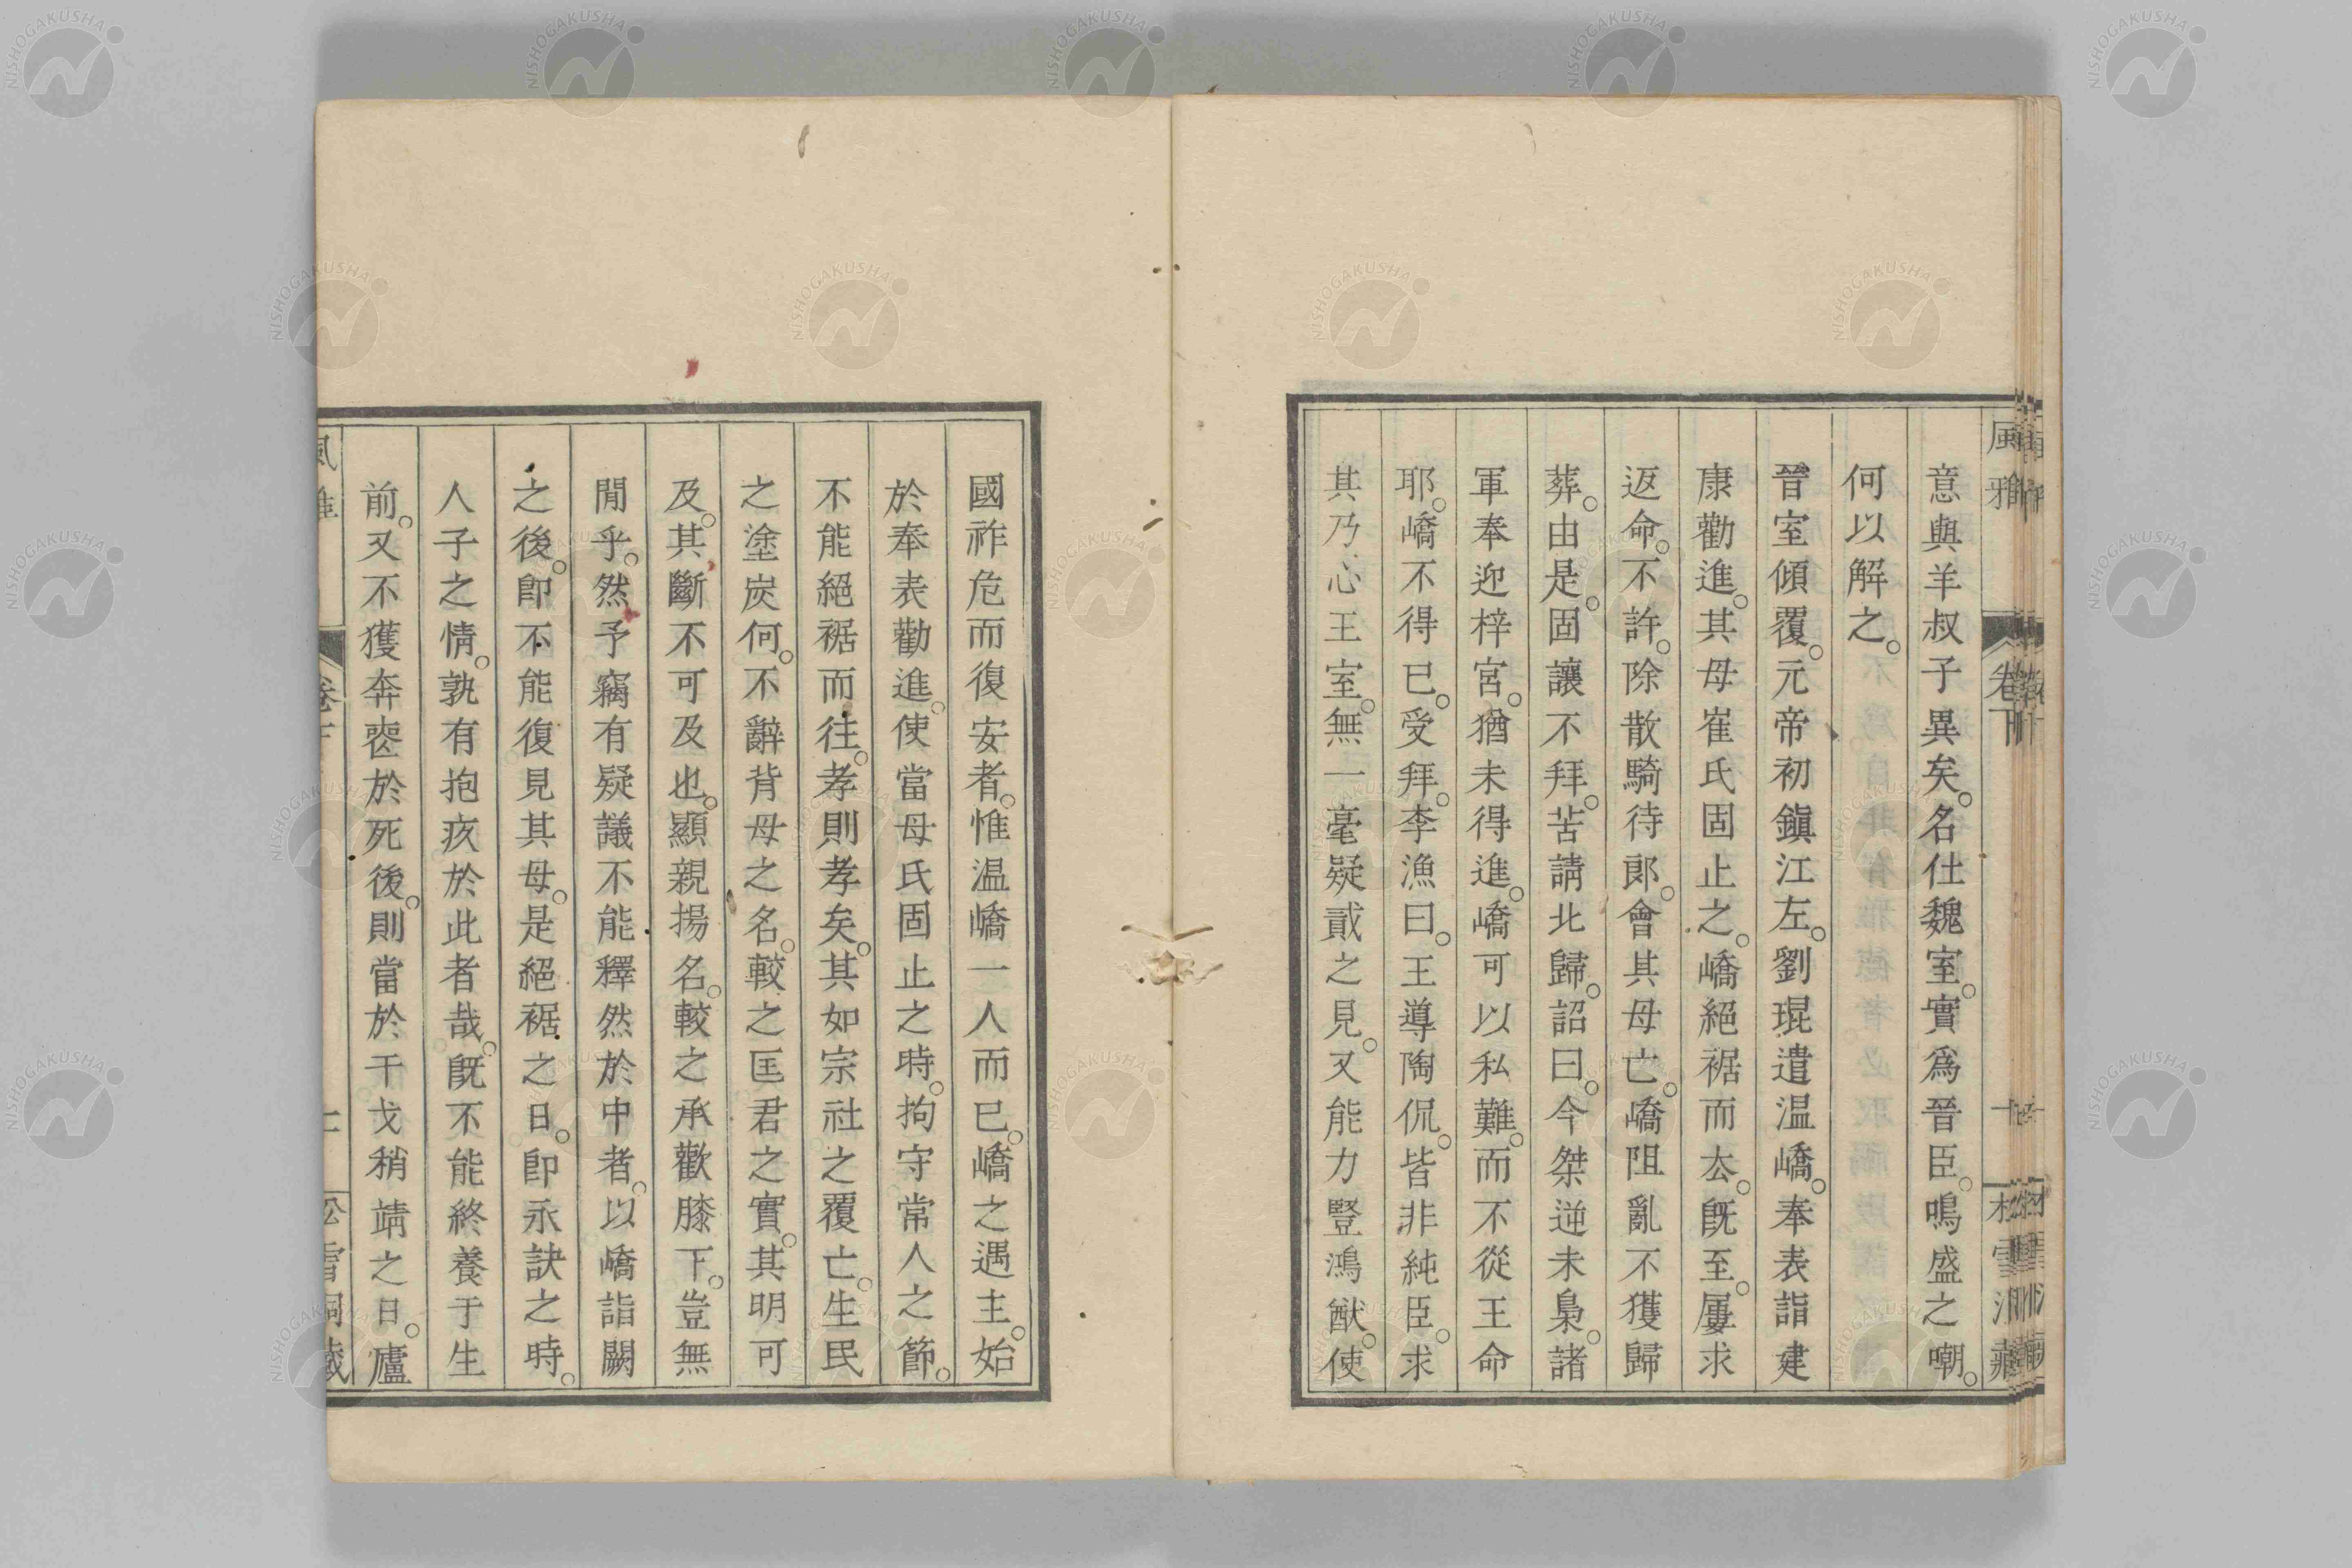 意與羊叔子異矣。名仕魏室。實爲晉臣。鳴盛之嘲。
何以解之。
晉室傾覆。元帝初鎭江左。劉琨遣温嶠。奉表詣建
康勸進。其母崔氏固止之。嶠絕裾而去。旣至。屢求
返命。不許。除散騎待郎。會其母亡。嶠阻亂不獲歸
葬。由是。固讓不拜。苦請北歸。詔曰。今桀逆未梟。諸
軍奉迎梓宮。猶未得進。嶠可以私難。而不從王命
耶。嶠不得已。受拜。李漁曰。王導陶侃。皆非純臣。求
其乃心王室。無一毫疑貳之見。又能力豎鴻猷。使
國祚危而復安者。惟温嶠一人而已。嶠之遇主。始
於奉表勸進。使當母氏固止之時。拘守常人之節。
不能絕裾而往。孝則孝矣。其如宗社之覆亡。生民
之塗炭何。不辭背母之名。較之匡君之實。其明可
及。其斷不可及也。顯親揚名。較之承歡膝下。豈無
閒乎。然予竊有疑議不能釋然於中者。以嶠詣闕
之後。卽不能復見其母。是絕裾之日。卽永訣之時。
人子之情。孰有抱疚於此者哉。旣不能終養于生
前。又不獲奔喪於死後。則當於干戈稍靖之日。廬
風雅
卷下
NISHOGAKUSHA